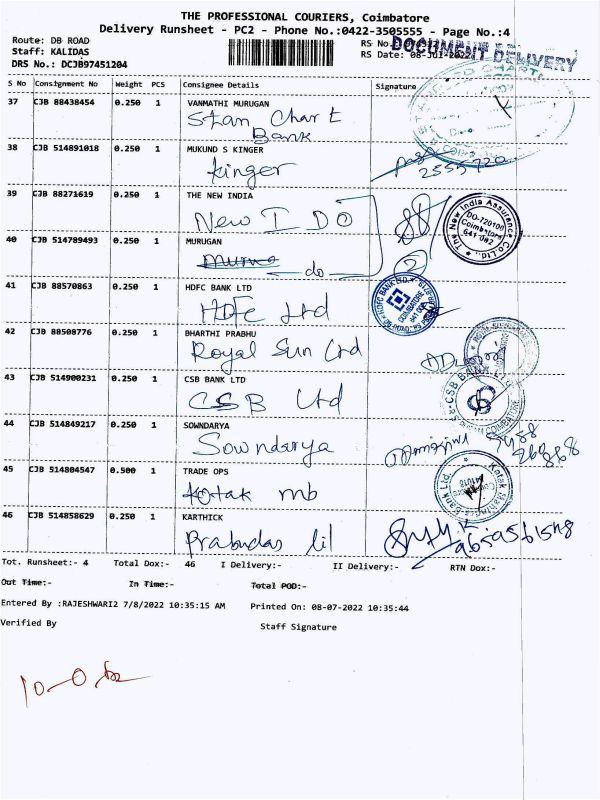 THE PROFESSIONAL COURIERS, Coimbatore
Delivery Runsheet - PC2 - Phone No.:0422-3505555 - Page No.:4
Route: DB ROAD
Staff: KALIDAS
DRS No.: DCJB97451204
RS No.
DOCUMENT DELIVERY
RS Date: 08-Jul-2022
S No Consignment No Weight PCS Consignee Details Signature
37 CJB 88438454 0.250 1 VANMATHI MURUGAN
Stan Chart
Bank
38 CJB 514891018 0.250 1 MUKUND S KINGER
Kinger
2555720
39 CJB 88271619 0.250 1 THE NEW INDIA
New I DO
The New India Assurance Co. Ltd.
DO-720100
Coimbatore
641 002
40 CJB 514789493 0.250 1 MURUGAN
do
41 CJB 88570863 0.250 1 HDFC BANK LTD
Hdfc Ltd
HDFC BANK LTD.
COIMBATORE
42 CJB 88508776 0.250 1 BHARTHI PRABHU
Royal Sun Ltd
43 CJB 514900231 0.250 1 CSB BANK LTD
CSB Ltd
CSB BANK LTD
COIMBATORE
44 CJB 514849217 0.250 1 SOWNDARYA
Sowndarya
45 CJB 514804547 0.500 1 TRADE OPS
Kotak mb
Kotak Mahindra Bank Ltd.
46 CJB 514858629 0.250 1 KARTHICK
Prabudas lil
Tot. Runsheet:- 4 Total Dox:- 46 I Delivery:- II Delivery:- RTN Dox:-
Out Time:- In Time:- Total POD:-
Entered By :RAJESHWARI2 7/8/2022 10:35:15 AM Printed On: 08-07-2022 10:35:44
Verified By Staff Signature